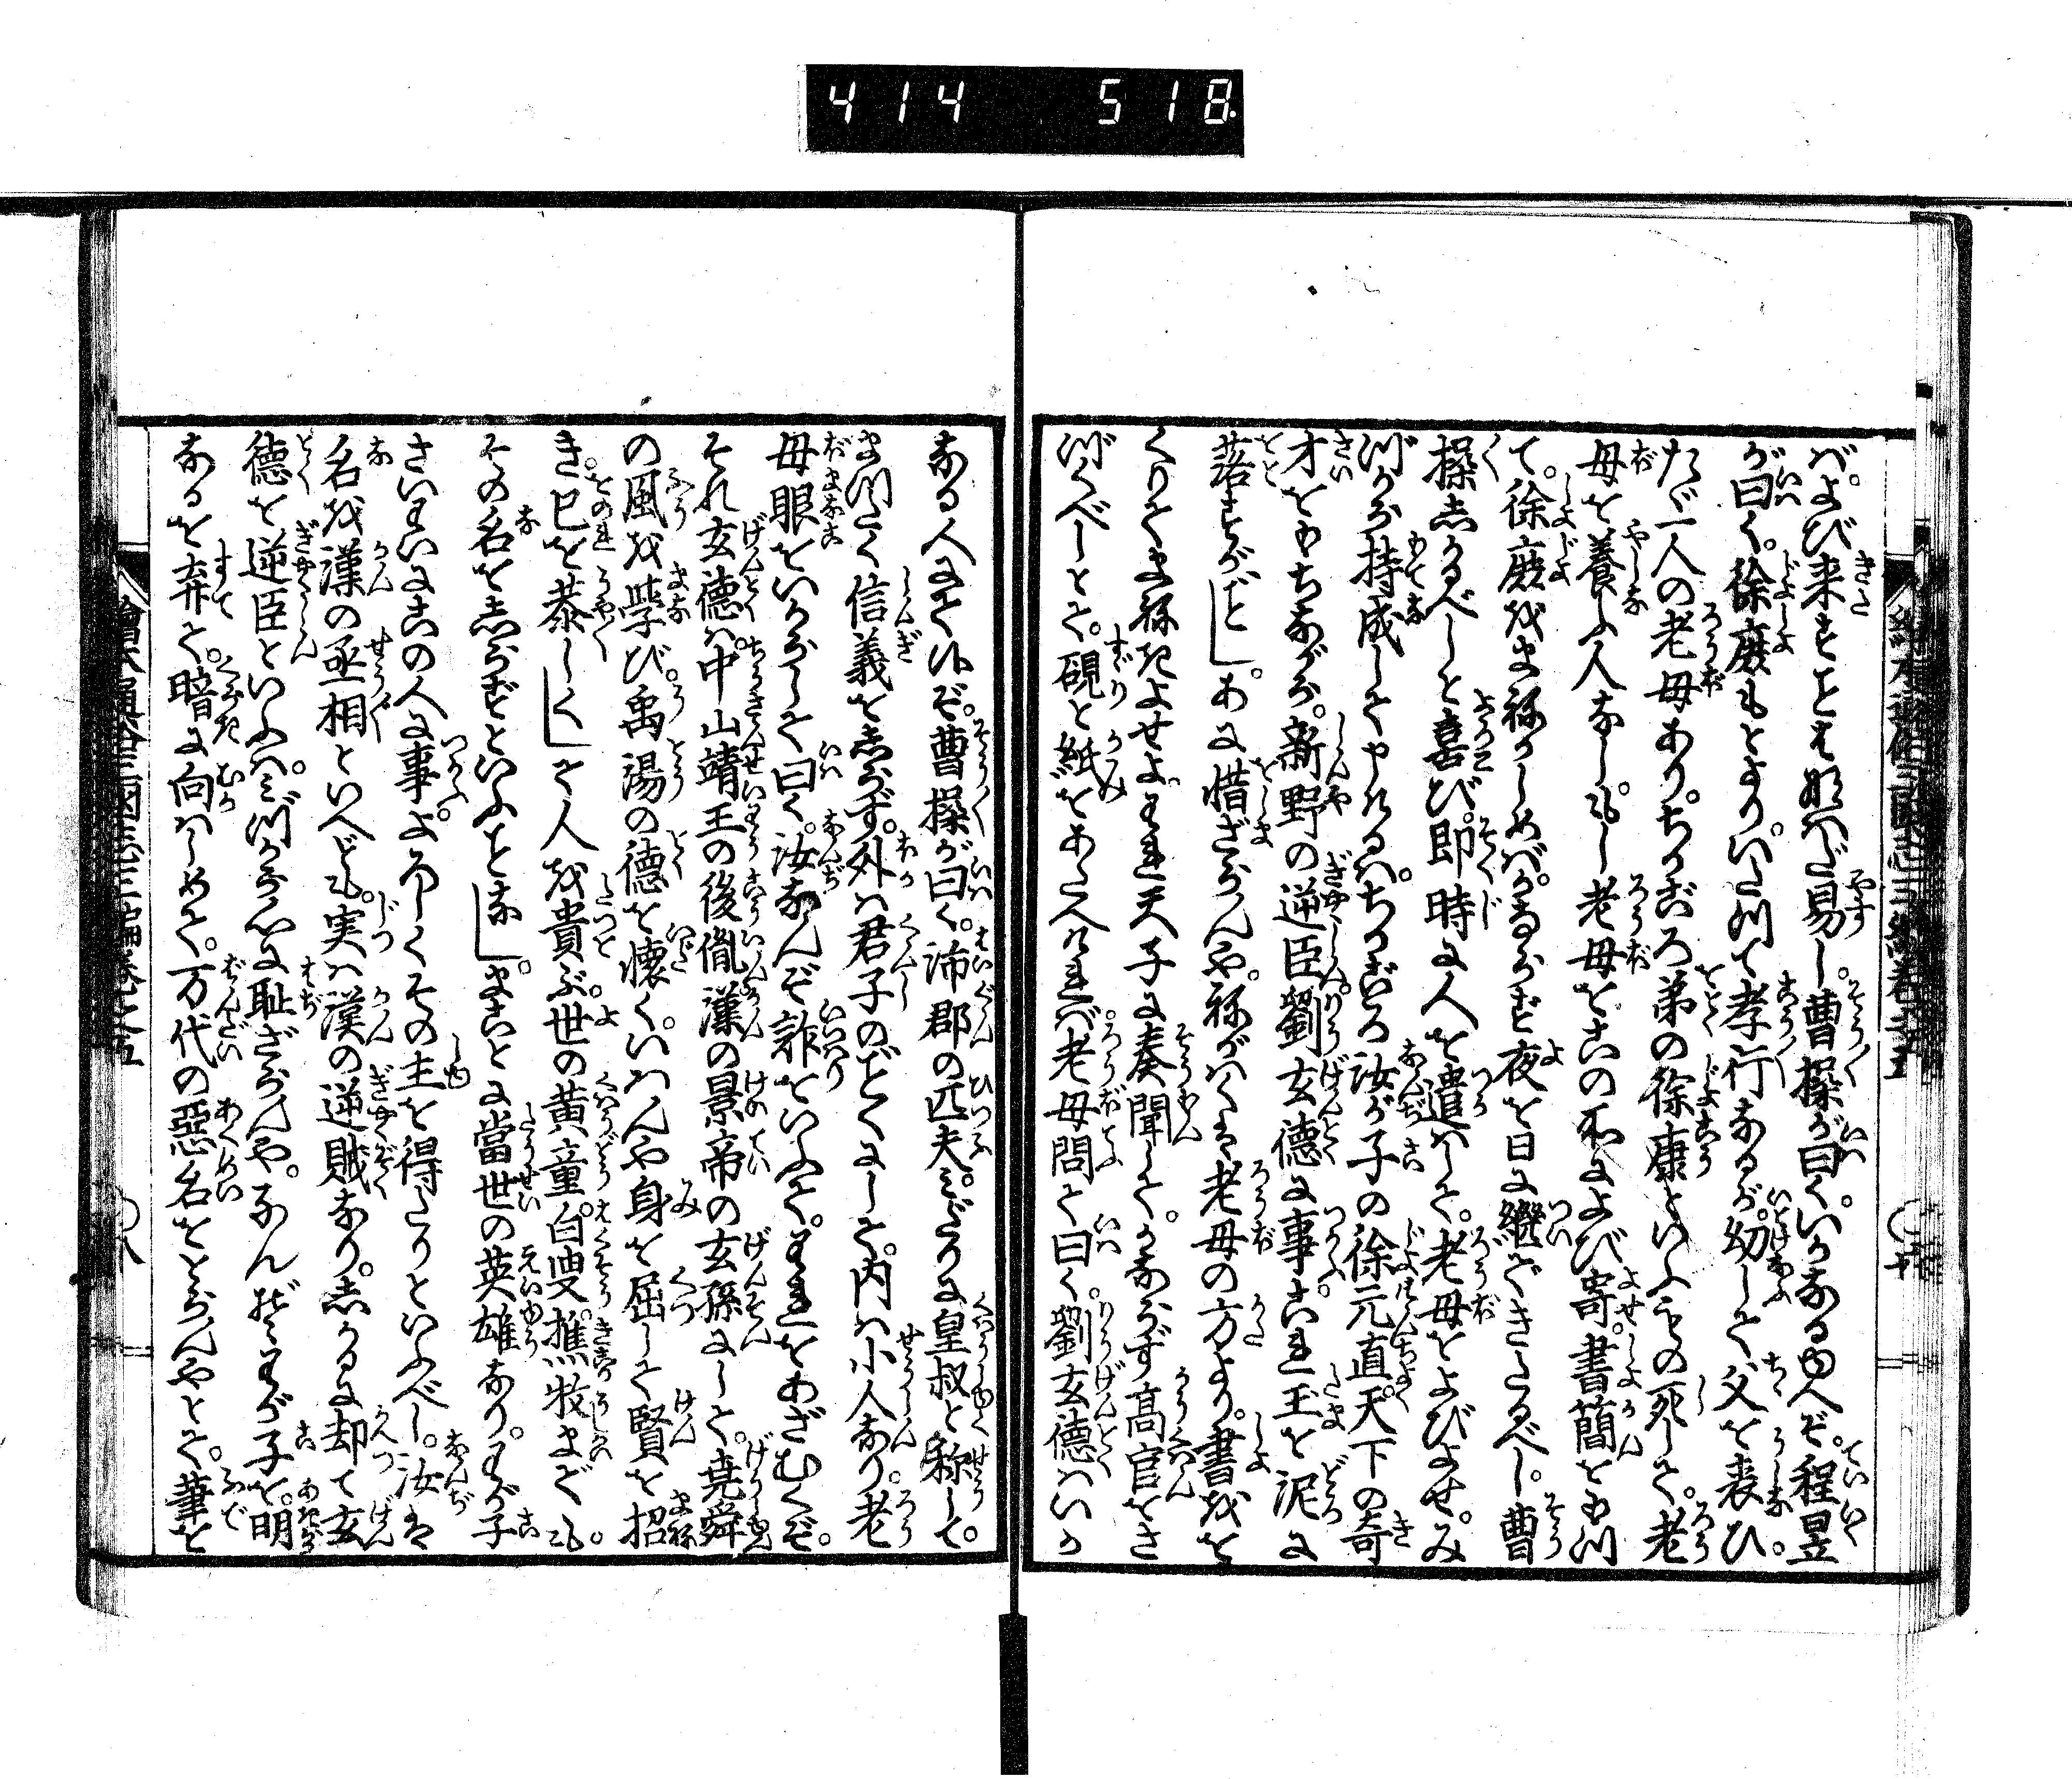 414 518
バ。よび来すことも甚だ易し。曹操が曰く。いかなるゆへぞ。程昱
が曰く。徐庶もとよりいたつて孝行なるが。幼して父を喪ひ。
たゞ一人の老母あり。ちかごろ弟の徐康といふもの死して。老
母を養ふ人なし。もし老母をこの所によび寄。書簡をもつ
て。徐庶をまねかしめバ。かならず夜を日に継できたるべし。曹
操しかるべしと喜び。即時に人を遣はして。老母をよびよせ。み
づから持成してやけるハ。ちかごろ汝が子の徐元直。天下の奇
才をもちながら。新野の逆臣。劉玄徳に事ふ。これ玉を泥に
落すがごとし。あに惜ざらんや。ねがはくは老母の方より。書を
くりてまねきよせよ。われ天子に奏聞して。かならず高官をさ
づくべしとて。硯と紙をあたへければ。老母問て曰く。劉玄徳ハいか
なる人にて候ぞ。曹操が曰く。沛郡の匹夫。みだりに皇叔と称して。
まつたく信義をしらず。外ハ君子のごとくにして。内ハ小人なり。老
母眼をいからして曰く。汝なんぞ詐をいふて。われをあざむくぞ。
それ玄徳ハ。中山靖王の後胤漢の景帝の玄孫にして。堯舜
の風を学び。禹湯の徳を懐く。いはんや身を屈して賢を招
き。己を恭しくして人を貴ぶ。世の黄童。白叟。樵牧までも。
その名をしらずといふことなし。まことに當世の英雄なり。わが子
さいわいにこの人に事。よろしくその主を得たりといふべし。汝は
名を漢の丞相といへども。実ハ漢の逆賊なり。しかるに却て玄
徳を逆臣といふハ。みづから心に恥ざらんや。なんぞわが子を。明
なるを弃て。暗に向ハしめて。万代の悪名をとらんやとて。筆を
繪本通俗三國志三編巻之五